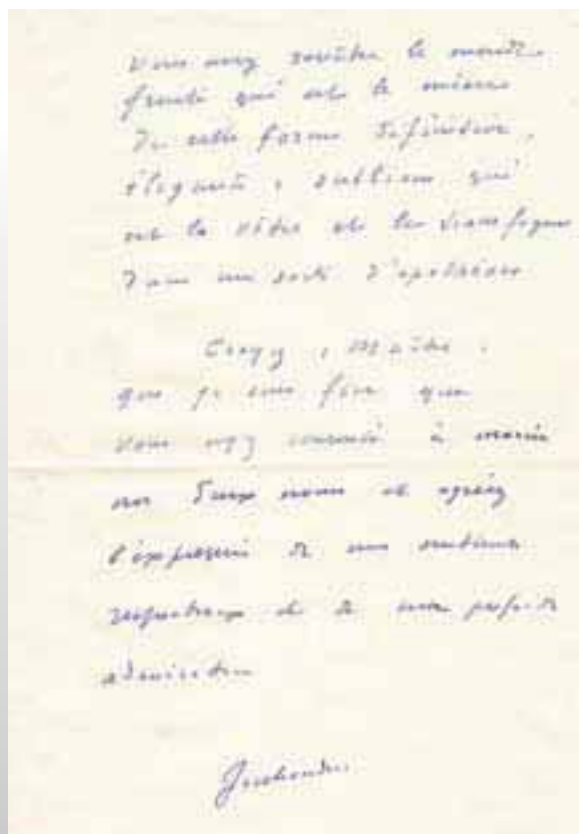 Vous avez revêtu le monde
qui est le mien
de cette forme définitive,
élégante, sublime qui
est la vôtre et le transfigure
dans une sorte d'apothéose
Croyez, Maître,
que je suis fier que
vous ayez consenti à marier
nos deux noms et agréez
l'expression de mes sentiments
respectueux et de ma parfaite
admiration
Jouhandeau